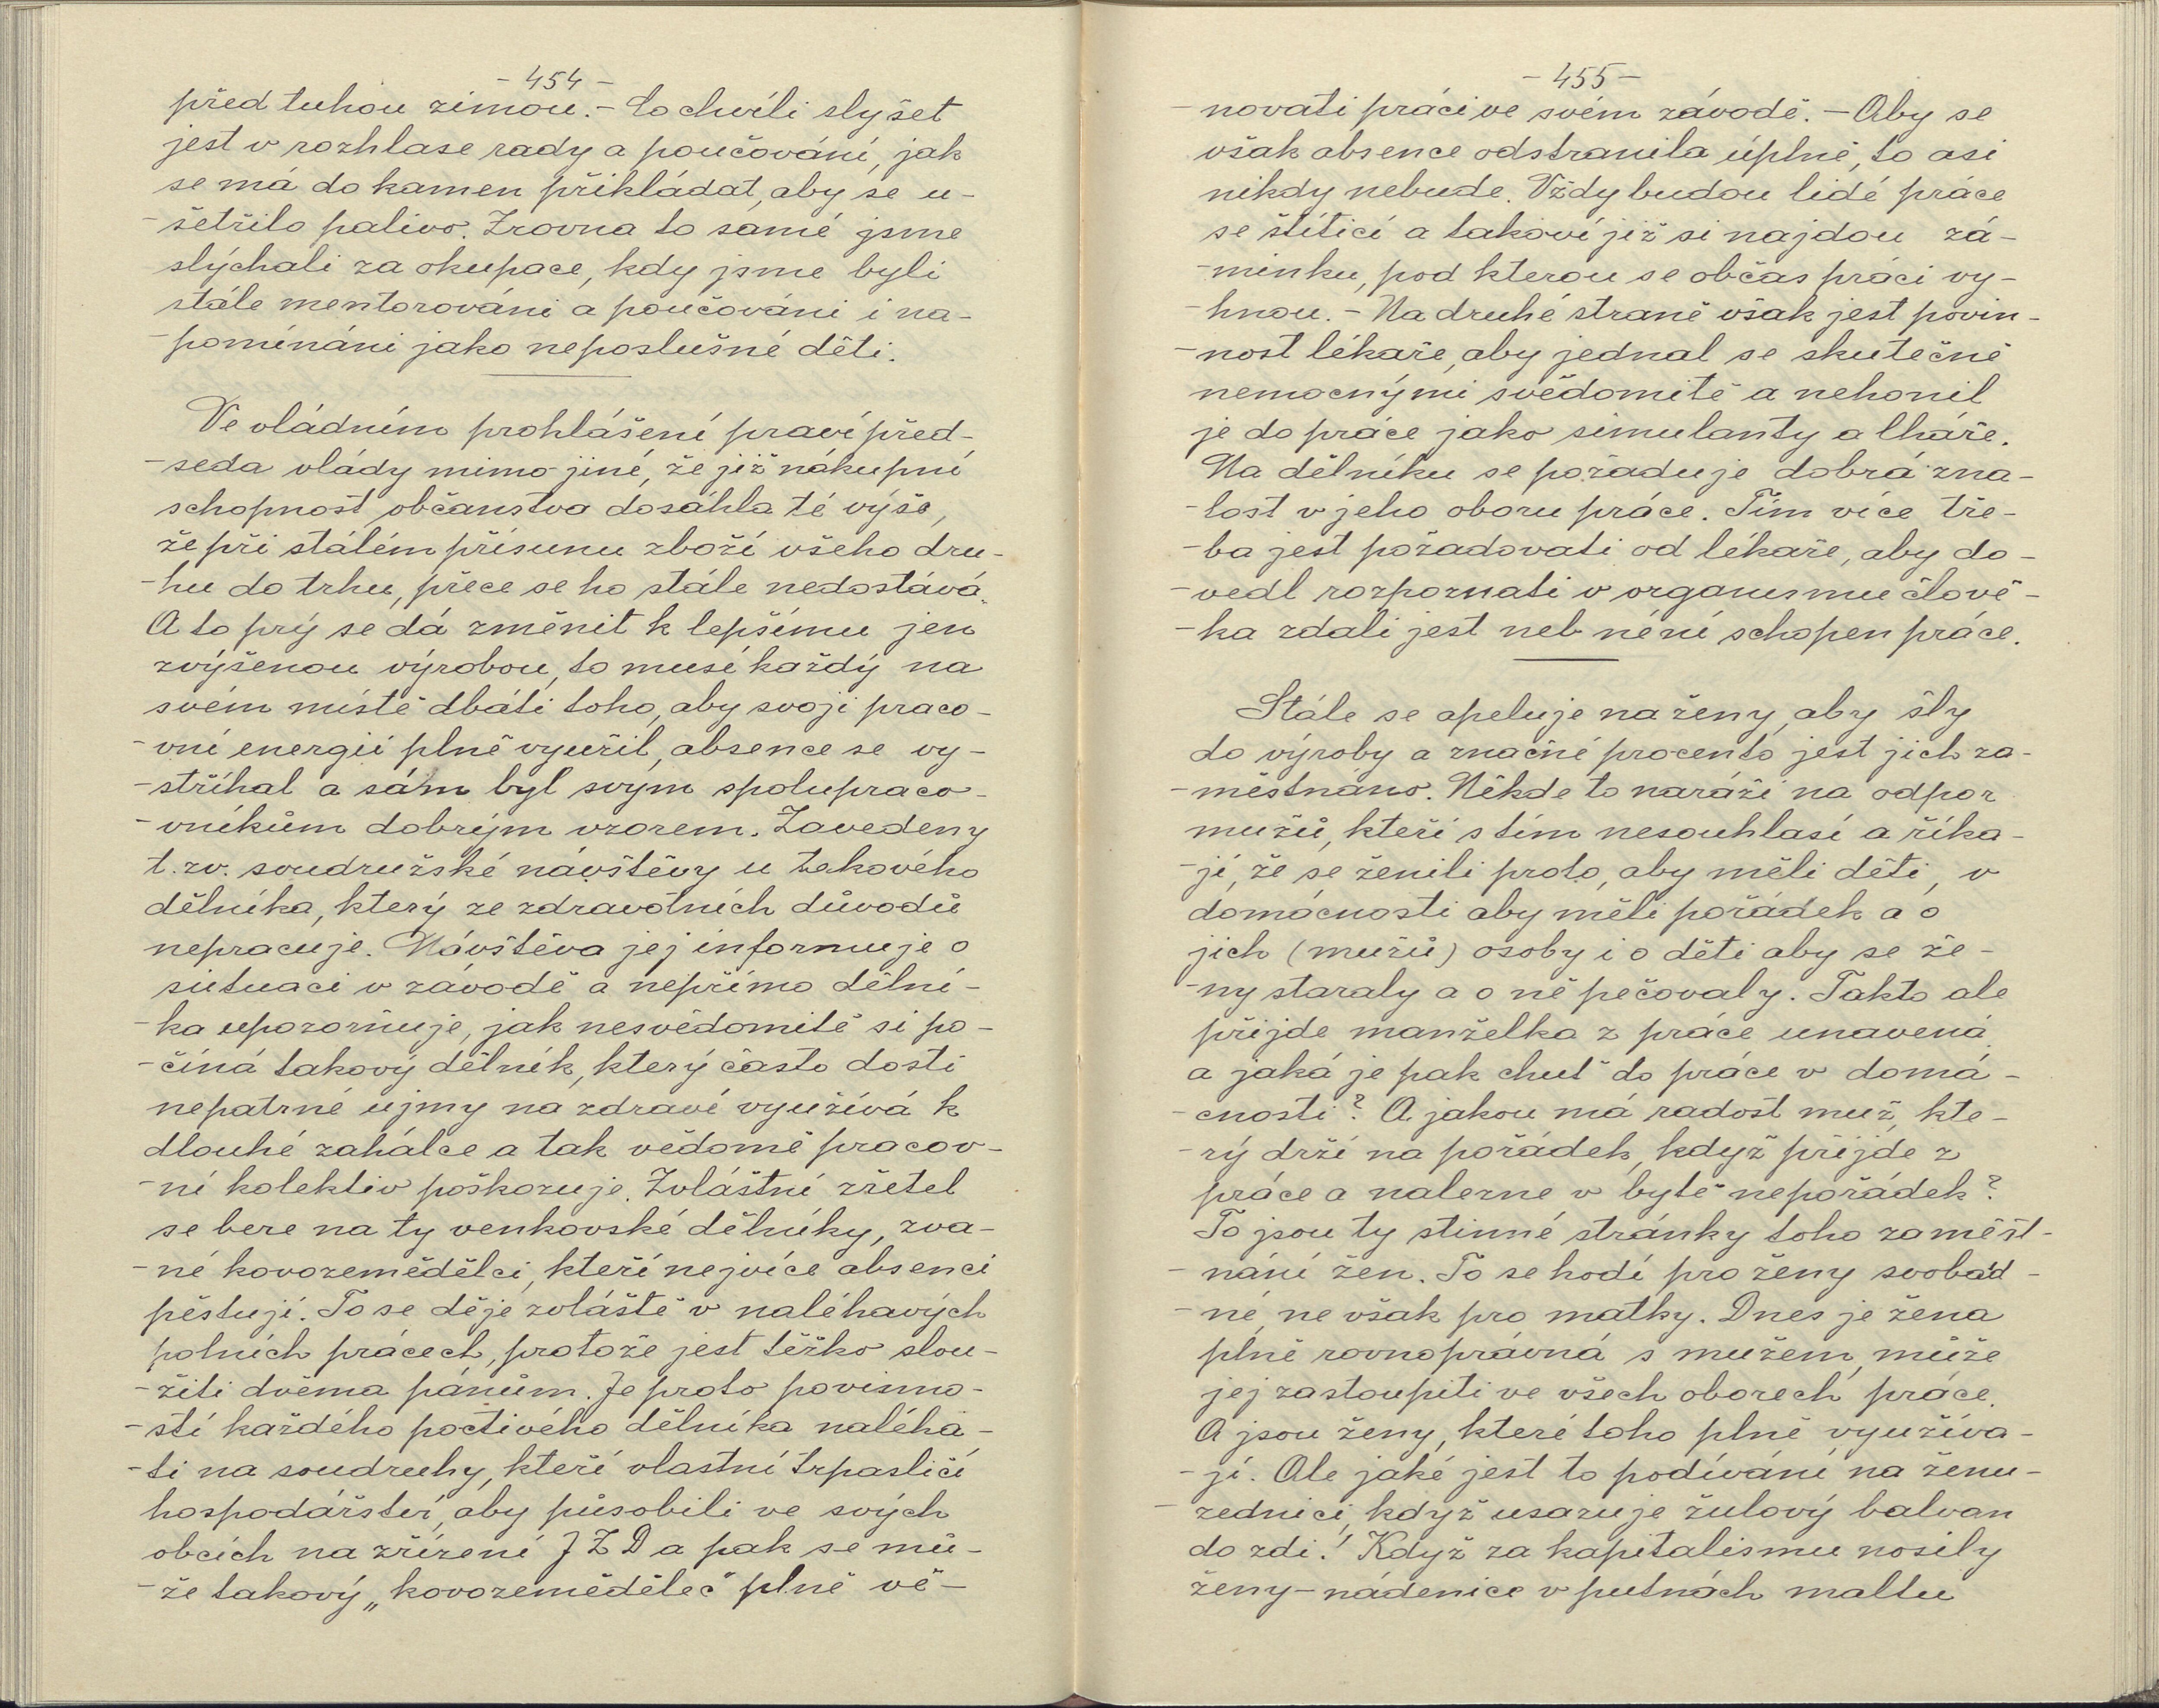 - 454 -
před tuhou zimou. - Co chvíli slyšet
jest v rozhlase rady a poučování, jak
se má do kamen přikládat, aby se u-
-šetřilo palivo. Zrovna to samé jsme
slýchali za okupace, kdy jsme byli
stále mentorováni a poučováni i na-
-pomínáni jako neposlušné děti.
Ve vládním prohlášení praví před-
-seda vlády mimo jiné, že již nákupní
schopnost občanstva dosáhla té výše,
že při stálém přísunu zboží všeho dru-
-hu do trhu, přece se ho stále nedostává.
A to prý se dá změnit k lepšímu jen
zvýšenou výrobou, to musí každý na
svém místě dbáti toho, aby svoji praco-
-vní energii plně využil, absence se vy-
-stříhal a sám byl svým spolupraco-
-vníkům dobrým vzorem. Zavedeny
t. zv. soudružské návštěvy u takového
dělníka, který ze zdravotních důvodů
nepracuje. Návštěva jej informuje o
situaci v závodě a nepřímo dělní-
-ka upozorňuje, jak nesvědomitě si po-
-číná takový dělník, který často dosti
nepatrné újmy na zdraví využívá k
dlouhé zahálce a tak vědomě pracov-
-ní kolektiv poškozuje. Zvláštní zřetel
se bere na ty venkovské dělníky, zva-
-né kovozemědělci, kteří nejvíce absenci
pěstují. To se děje zvláště v naléhavých
polních prácech, protože jest těžko slou-
-žiti dvěma pánům. Je proto povinno-
-stí každého poctivého dělníka naléha-
-ti na soudruhy, kteří vlastní trpasličí
hospodářství, aby působili ve svých
obcích na zřízení JZD a pak se mů-
-že takový „kovozemědělec" plně vě-
- 455 -
-novati práci ve svém závodě. - Aby se
však absence odstranila úplně, to asi
nikdy nebude. Vždy budou lidé práce
se štítící a takoví již si najdou zá-
-minku, pod kterou se občas práci vy-
-hnou. - Na druhé straně však jest povin-
-nost lékaře, aby jednal se skutečně
nemocnými svědomitě a nehonil
je do práce jako simulanty a lháře.
Na dělníku se požaduje dobrá zna-
-lost v jeho oboru práce. Tím více tře-
-ba jest požadovati od lékaře, aby do-
-vedl rozpoznati v organismu člově-
-ka zdali jest neb není schopen práce.
Stále se apeluje na ženy, aby šly
do výroby a značné procento jest jich za-
-městnáno. Někde to naráží na odpor
mužů, kteří s tím nesouhlasí a říka-
-jí, že se ženili proto, aby měli děti, v
domácnosti aby měli pořádek a o
jich (mužů) osoby i o děti aby se že-
-ny staraly a o ně pečovaly. Takto ale
přijde manželka z práce unavená
a jaká je pak chuť do práce v domá-
-cnosti? A jakou má radost muž, kte-
-rý drží na pořádek, když přijde z
práce a nalezne v bytě nepořádek?
To jsou ty stinné stránky toho zaměst-
-nání žen. To se hodí pro ženy svobod-
-né, ne však pro matky. Dnes je žena
plně rovnoprávná s mužem, může
jej zastoupiti ve všech oborech práce.
A jsou ženy, které toho plně využíva-
-jí. Ale jaké jest to podívání na ženu-
-zednici, když usazuje žulový balvan
do zdi! Když za kapitalismu nosily
ženy-nádenice v putnách maltu